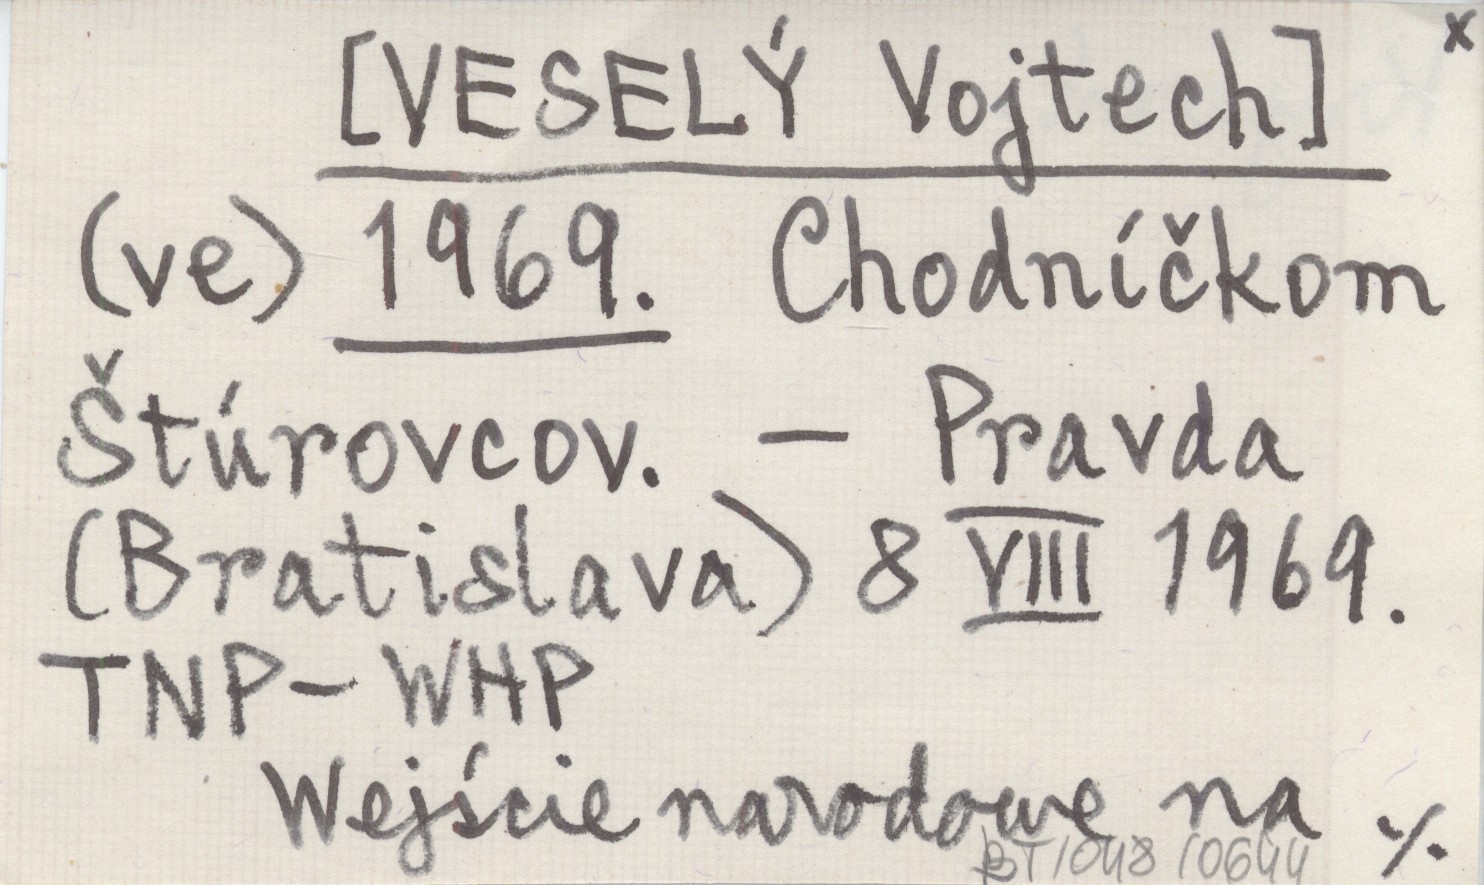 x
[VESELÝ Vojtech]
(ve) 1969. Chodníčkom
Štúrovcov. — Pravda
(Bratislava) 8 VIII 1969.
TNP – WHP
Wejście narodowe na ·/.
BT/048/0644